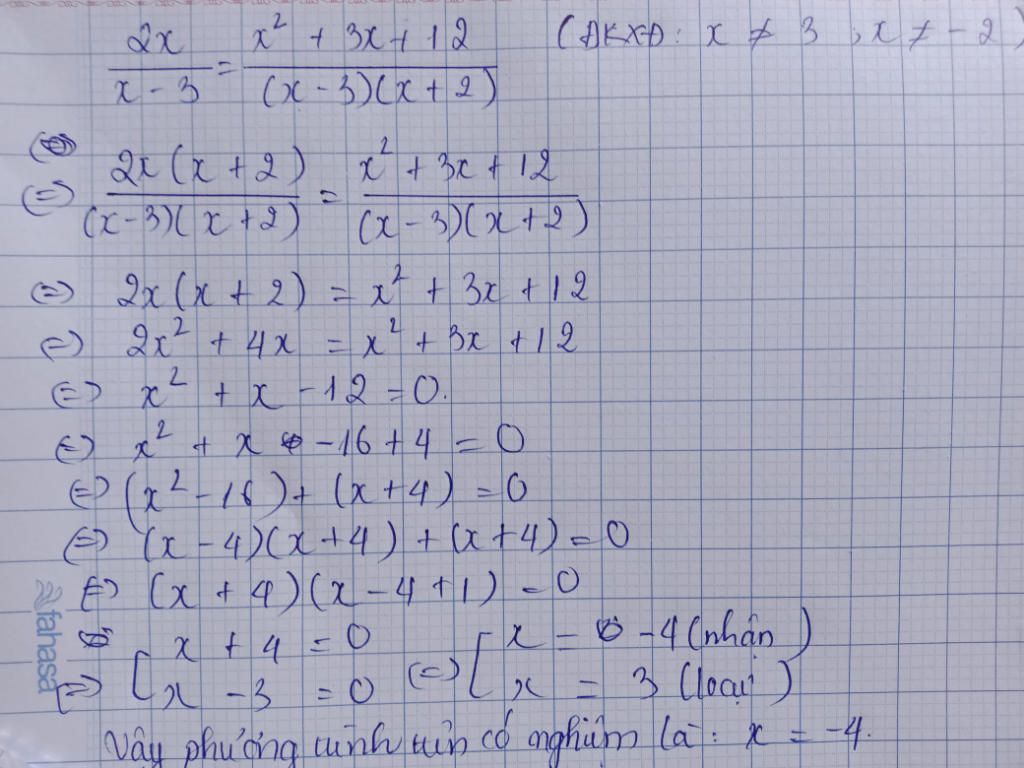 2x/(x - 3) = (x² + 3x + 12)/((x - 3)(x + 2)) (ĐKXĐ: x ≠ 3, x ≠ -2)
⇔ 2x(x + 2)/((x - 3)(x + 2)) = (x² + 3x + 12)/((x - 3)(x + 2))
⇔ 2x(x + 2) = x² + 3x + 12
⇔ 2x² + 4x = x² + 3x + 12
⇔ x² + x - 12 = 0.
⇔ x² + x - 16 + 4 = 0
⇔ (x² - 16) + (x + 4) = 0
⇔ (x - 4)(x + 4) + (x + 4) = 0
⇔ (x + 4)(x - 4 + 1) = 0
⇔ [ x + 4 = 0 ⇔ [ x = -4 (nhận)
x - 3 = 0 x = 3 (loại)
Vậy phương trình trên có nghiệm là: x = -4.
fahasa